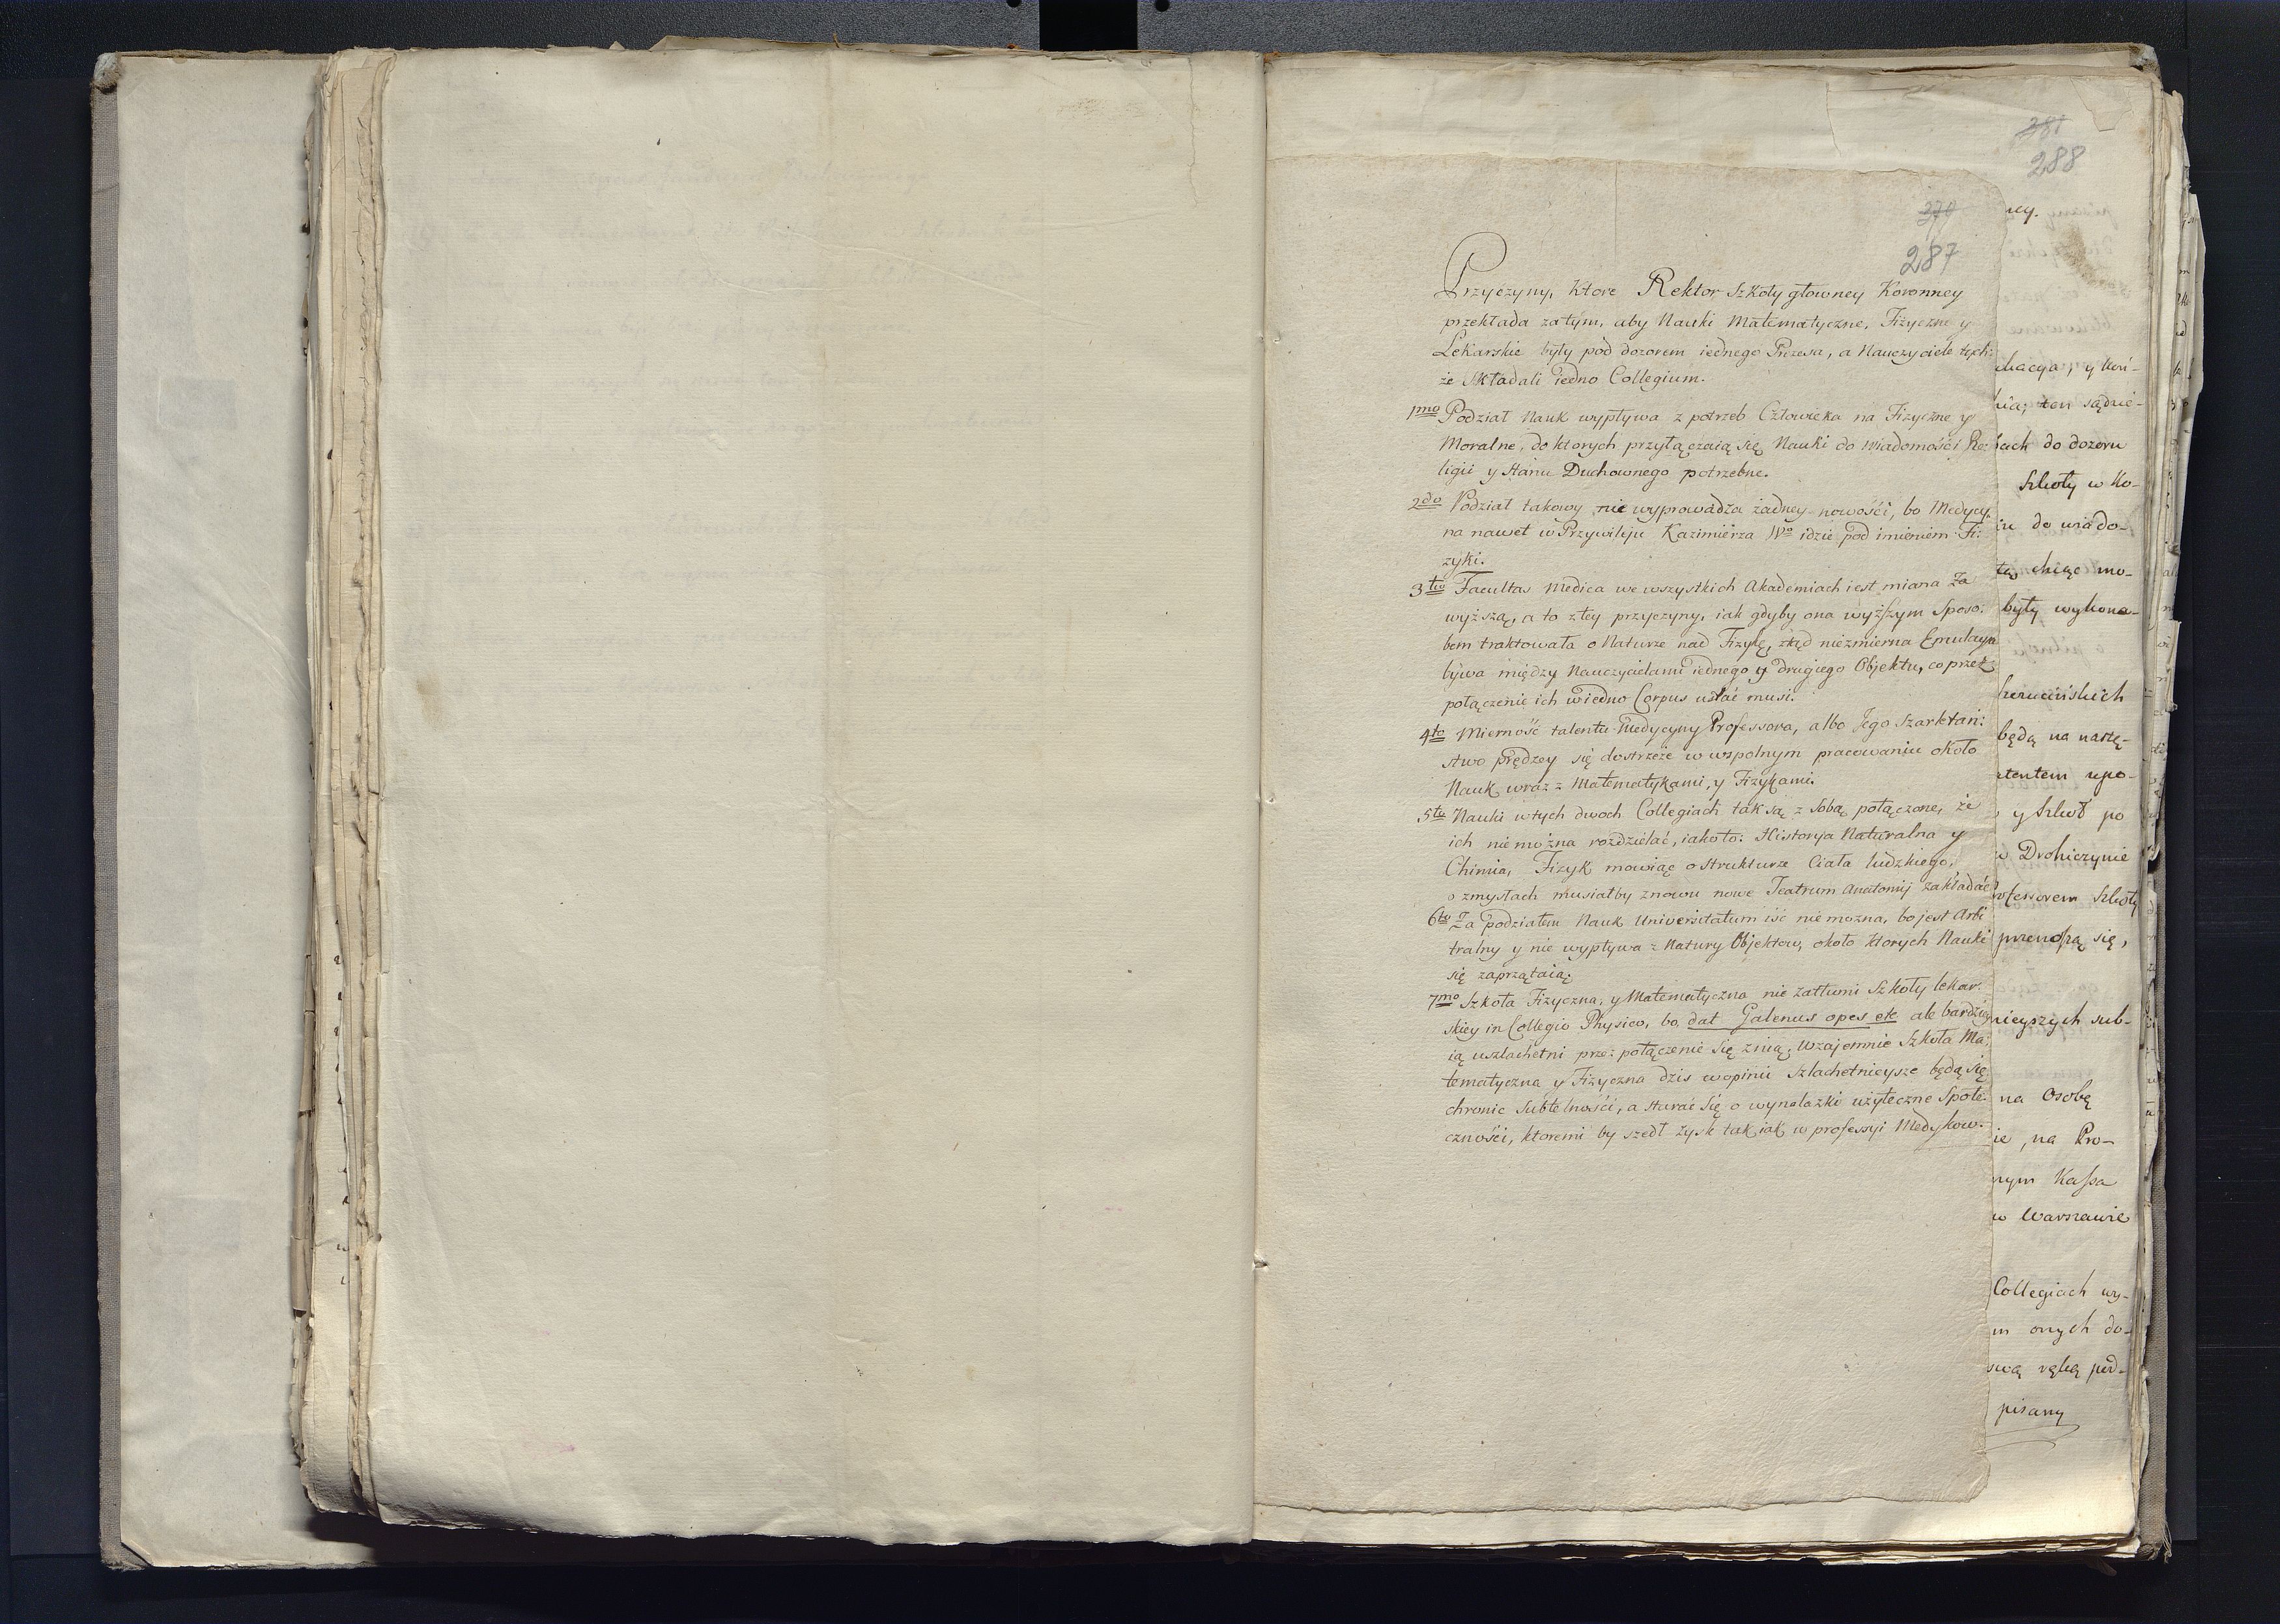 381
288
370
287
Przyczyny, ktore Rektor Szkoły głowney Koronney
przekłada zatym, aby Nauki Matematyczne, Fizyczne y
Lekarskie były pod dozorem iednego Prezesa, a Nauczyciele tych:
że składali iedno Collegium.
1mo Podział Nauk wypływa z potrzeb Człowieka na Fizyczne y
Moralne, do ktorych przyłączaią się Nauki do wiadomości Re:
ligii y stanu Duchownego potrzebne.
2do Podział takowy nie wyprowadza żadney nowości, bo Medycy:
na nawet w Przywileju Kazimierza Wo idzie pod imieniem Fi:
zyki.
3tio Facultas Medica we wszystkich Akademiach iest miana za
wyższą, a to z tey przyczyny, iak gdyby ona wyższym Sposo:
bem traktowała o Naturze nad Fizykę, ztąd niezmierna Emulacya
bywa między Nauczycielami iednego y drugiego Objektu, co przez
połączenie ich w iedno Corpus ustać musi.
4to Mierność talentu Medycyny Professora, albo Jego Szarłatań:
stwo prędzey się dostrzeże w wspolnym pracowaniu około
Nauk wraz z Matematykami, y Fizykami.
5to Nauki w tych dwoch Collegiach tak są z sobą połączone, że
ich nie można rozdzielać, iakoto: Historya Naturalna y
Chimia, Fizyk mowiąc o strukturze Ciała ludzkiego,
o zmysłach musiałby znowu nowe Teatrum Anatomij zakładać
6to Za podziałem Nauk Universitatum iść nie można, bo jest Arbi
tralny y nie wypływa z Natury Objektow, około ktorych Nauki
się zaprzątaią.
7mo Szkoła Fizyczna, y Matematyczna nie zatłumi Szkoły lekar:
skiey in Collegio Physico, bo dat Galenus opes etc ale bardziey
ią uszlachetni przez połączenie się z nią; Wzajemnie Szkoła Ma:
tematyczna y Fizyczna dzis w opinii szlachetnieysze będą się
chronić Subtelności, a starać się o wynalazki użyteczne Społe:
czności, ktoremi by szedł zysk tak iak w professyi Medykow.
ney.
y koń-
ten sądzie-
bach do dozoru
Szkoły w Ko-
do wiado-
chcąc mo-
były wykona-
będą na nastę-
upo-
y Szkoł po
w Drohiczynie
Szkoły
przenoszą się,
sub-
na Osobę
na Pro-
Kassa
w Warszawie
Collegiach wy-
onych do-
swą ręką pod-
pisany